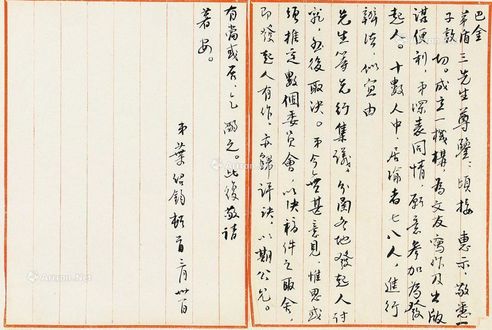 巴金
茅盾
三先生尊鑒：頃接 惠示，敬悉一
切。成立一機構，為文友寫作及出版
謀便利，弟深表同情，願意參加為發
起人。十數人中，居渝者七八人，進行
辦法，似宜由
先生等先行集議，分函各地發起人討
論，然後取決。弟今無甚意見，惟思或
須推定數個委員會，以決稿件之取舍，
即發起人有作，亦歸評決，以期公允。
有當或否，乞 酌之。此復敬請
著安。
弟葉紹鈞頓首三月